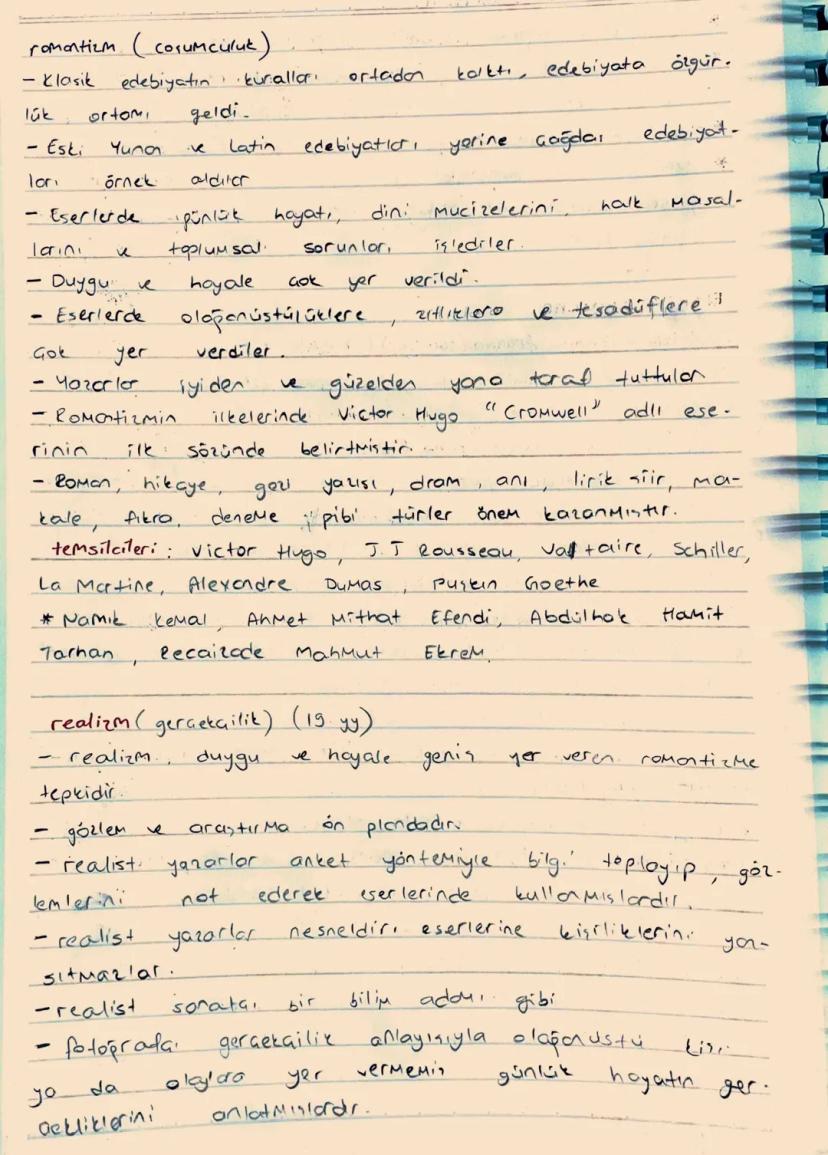 romantizm ( coşumculuk)
- Klasik edebiyatın kuralları ortadan kalktı, edebiyata özgür-
lük ortamı geldi.
- Eski Yunan ve Latin edebiyatları yerine çağdaş edebiyat-
ları örnek aldılar
- Eserlerde günlük hayatı, dini mucizelerini, halk masal-
larını ve toplumsal sorunları işlediler.
- Duygu ve hayale çok yer verildi.
- Eserlerde olağanüstülüklere, zıtlıklara ve tesadüflere
çok yer verdiler.
- Yazarlar iyiden ve güzelden yana taraf tuttular
- Romantizmin ilkelerinde Victor Hugo "Cromwell" adlı ese-
rinin ilk sözünde belirtmiştir.
- Roman, hikaye, gezi yazısı, dram, anı, lirik şiir, ma-
kale, fıkra, deneme gibi türler önem kazanmıştır.
temsilcileri: Victor Hugo, J.J Rousseau, Valtaire, Schiller,
La Martine, Alexandre Dumas, Puşkin Goethe
* Namık Kemal, Ahmet Mithat Efendi, Abdülhak Hamit
Tarhan, Recaizade Mahmut Ekrem.
realizm (gerçekçilik) (19. yy)
- realizm, duygu ve hayale geniş yer veren romantizme
tepkidir.
- gözlem ve araştırma ön plandadır.
- realist yazarlar anket yöntemiyle bilgi toplayıp, göz-
lemlerini not ederek eserlerinde kullanmışlardır.
- realist yazarlar nesneldir, eserlerine kişiliklerini yan-
sıtmazlar.
- realist sanatçı bir bilim adamı gibi
- fotoğrafçı gerçekçilik anlayışıyla olağanüstü kişi
ya da olaylara yer vermemiş günlük hayatın ger-
çekliklerini anlatmışlardır.